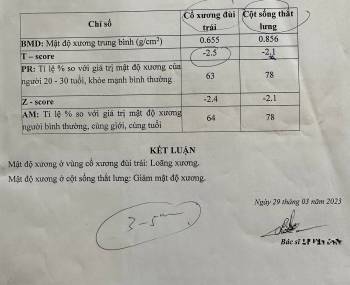 Chỉ số
Cổ xương đùi trái
Cột sống thắt lưng
BMD: Mật độ xương trung bình (g/cm²)
0.655
0.856
T – score
-2.5
-2.1
PR: Tỉ lệ % so với giá trị mật độ xương của
người 20 - 30 tuổi, khỏe mạnh bình thường
63
78
Z - score
-2.4
-2.1
AM: Tỉ lệ % so với giá trị mật độ xương
người bình thường, cùng giới, cùng tuổi
64
78
KẾT LUẬN
Mật độ xương ở vùng cổ xương đùi trái: Loãng xương.
Mật độ xương ở cột sống thắt lưng: Giảm mật độ xương.
Ngày 29 tháng 03 năm 2023
3-5
Bác sĩ